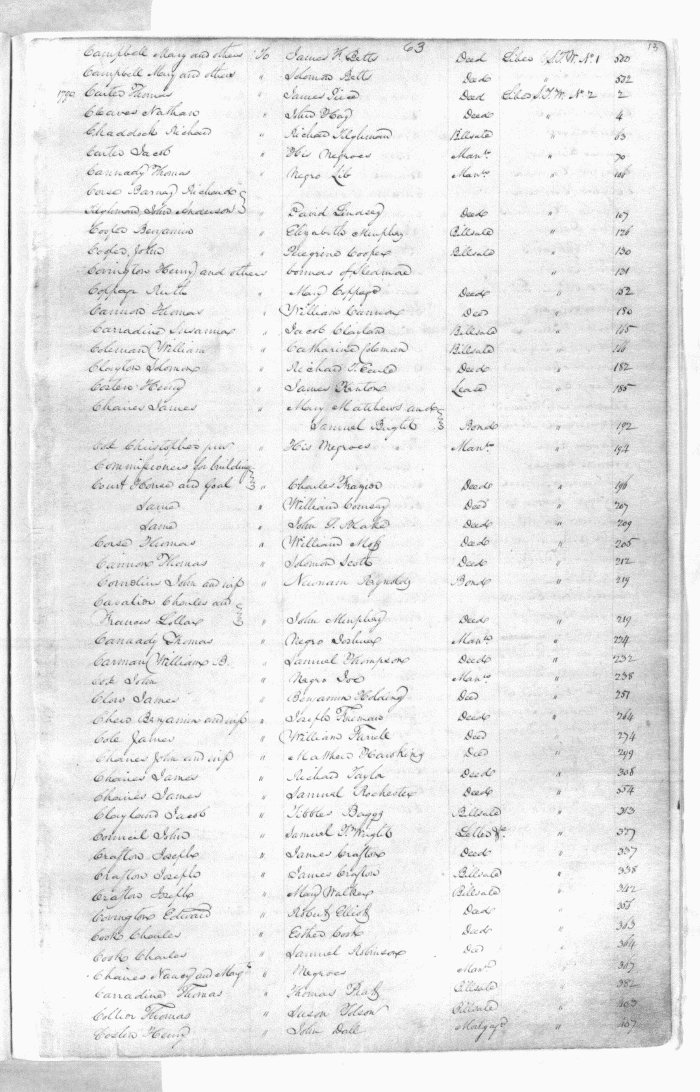 63 13
Campbell Mary and others To James W. Betts Deed Liber S.T.W. No 1 570
Campbell Mary and others " Solomon Betts Deed " 572
1790 Carter Thomas " James Deed Liber S.T.W. No 2 2
Cleaves Nathan " John Deed " 4
Chaddock Richard " Richard Tilghman Billsale " 63
Carter Jacob " His Negroes Mann " 70
Cannady Thomas " Negro Lib Man " 106
Corse Barnay Richard
Tilghman John Anderson " David Lindsey Deed " 107
Benjamin " Elizabeth Murphey Billsale " 126
Cooper John " Peregrine Cooper Billsale " 130
Covington Henry and others " " 131
Coppage Ruth " Mary Coppage Deed " 152
Cannon Thomas " William Cannon Deed " 180
Carradine Susanna " Jacob Billsale " 165
Coleman William " Catharine Coleman Billsale " 166
Clayton Solomon " Richard T. Earle Deed " 182
Costen Henry " James Lease " 185
Chaires James " Mary Matthews and
Samuel Bright Bond " 192
Christopher " His Negroes Man " 194
Commissioners for building
Court House and Goal " Charles Frazier Deed " 196
Same " William Deed " 207
Same " John S. Blake Deed " 209
Corse Thomas " William Deed " 205
Cannon Thomas " Solomon Scott Deed " 212
Cornelius John and wife " Newnam Reynolds Bond " 219
Cavalier Charles and
Frances " John Murphey Deed " 219
Cannady Thomas " Negro Joshua Man " 224
Carman William B. " Samuel Thompson Deed " 232
John " Negro Joe Man " 238
Clow James " Benjamin Holding Deed " 251
Chew Benjamin and wife " Joseph Freeman Deed " 264
Cole James " William Deed " 274
Chaires John and wife " Matthew Hawkins Deed " 299
Chaires James " Richard Taylor Deed " 308
Chaires James " Samuel Rochester Deed " 354
Clayland Jacob " Tibbles Baggs Billsale " 313
Council John " Samuel T. Wright Letter &c. " 327
Crafton Joseph " James Crafton Deed " 337
Crafton Joseph " James Crafton Billsale " 338
Crafton Joseph " Mary Walker Billsale " 342
Covington Edward " Robert Elliott Deed " 356
Cook Charles " Esther Cook Deed " 363
Cook Charles " Samuel Robinson Deed " 364
Chaires Nancy and " Negroes Man " 367
Carradine Thomas " Thomas Billsale " 382
Collier Thomas " Billsale " 403
Costen Henry " John Dall " 407